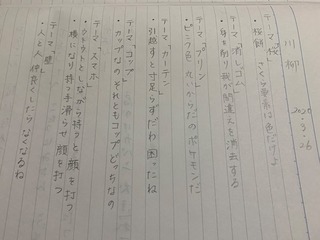 川柳
2025.9.26
テーマ「桜」
・桜餅 さくら要素は色だけよ
テーマ「消しゴム」
・身を削り我が間違えを消去する
テーマ「プリン」
・ピンク色 丸いからだのポケモンだ
テーマ「カーテン」
・引越すと寸足らずだわ 困ったね
テーマ「コップ」
・カップなのそれともコップどっちなの
テーマ「スマホ」
・うとうとしながら持つと顔を打つ
・横になり持つ手滑らせ 顔を打つ
テーマ「壁」
・人と人 仲良くしたらなくなるね